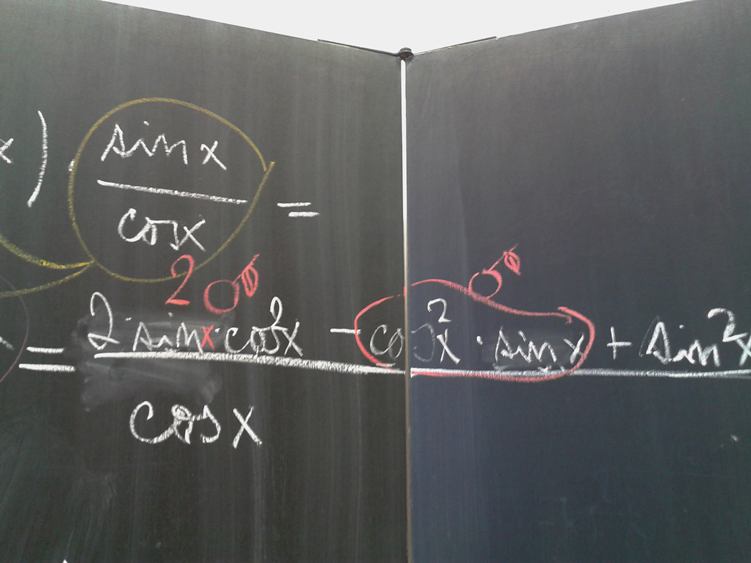 x) · sin x
cos x =
2
= 2 · sin x · cos²x - cos²x · sin x + sin²x
cos x